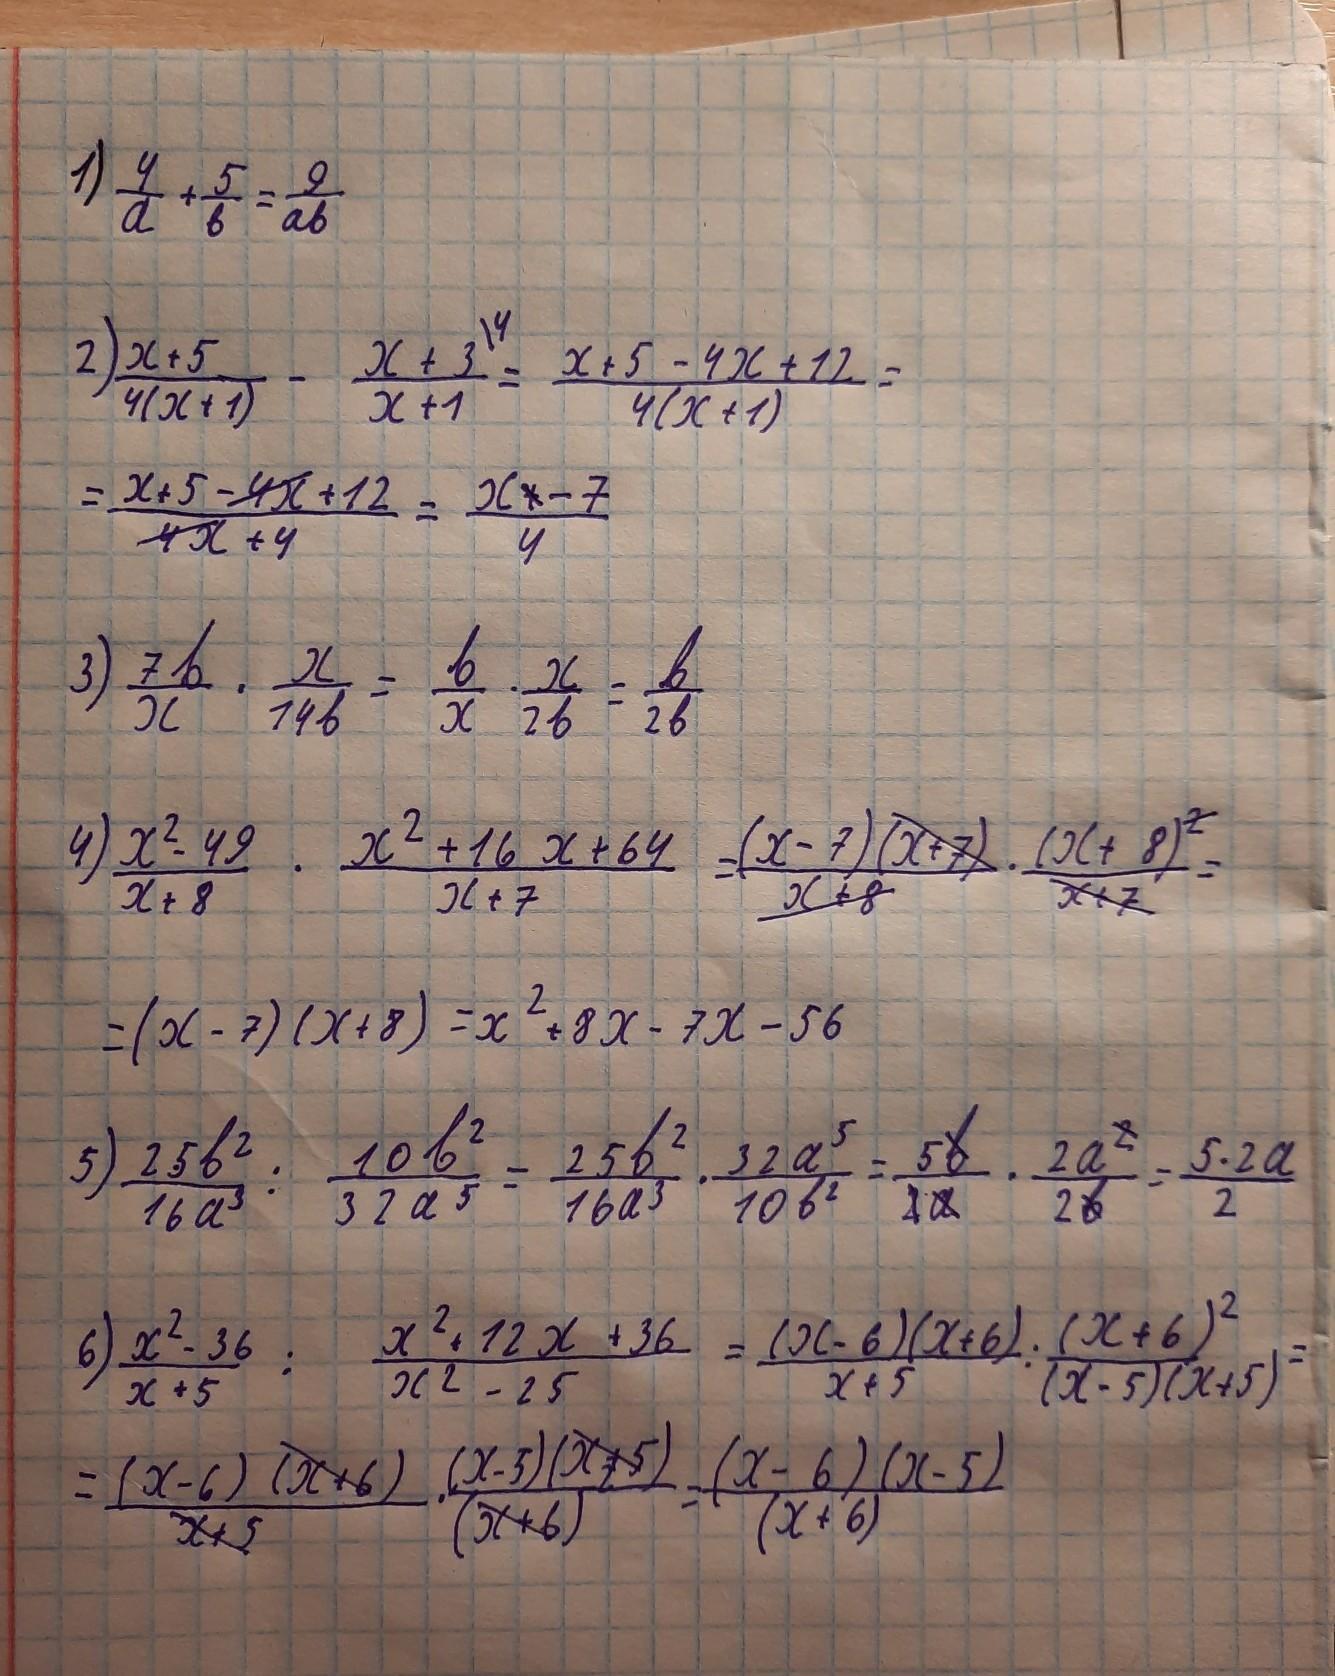 1) 4/a + 5/b = 9/ab
2) x+5/4(x+1) - x+3\4/x+1 = x+5-4x+12/4(x+1) =
= x+5-4x+12/4x+4 = x-7/4
3) 7b/x · x/14b = b/x · x/2b = b/2b
4) x²-49/x+8 · x²+16x+64/x+7 = (x-7)(x+7)/x+8 · (x+8)²/x+7 =
= (x-7)(x+8) = x²+8x-7x-56
5) 25b²/16a³ : 10b²/32a⁵ = 25b²/16a³ · 32a⁵/10b² = 5b/1a · 2a²/2b = 5·2a/2
6) x²-36/x+5 : x²+12x+36/x²-25 = (x-6)(x+6)/x+5 : (x+6)²/(x-5)(x+5) =
= (x-6)(x+6)/x+5 · (x-5)(x+5)/(x+6) = (x-6)(x-5)/(x+6)